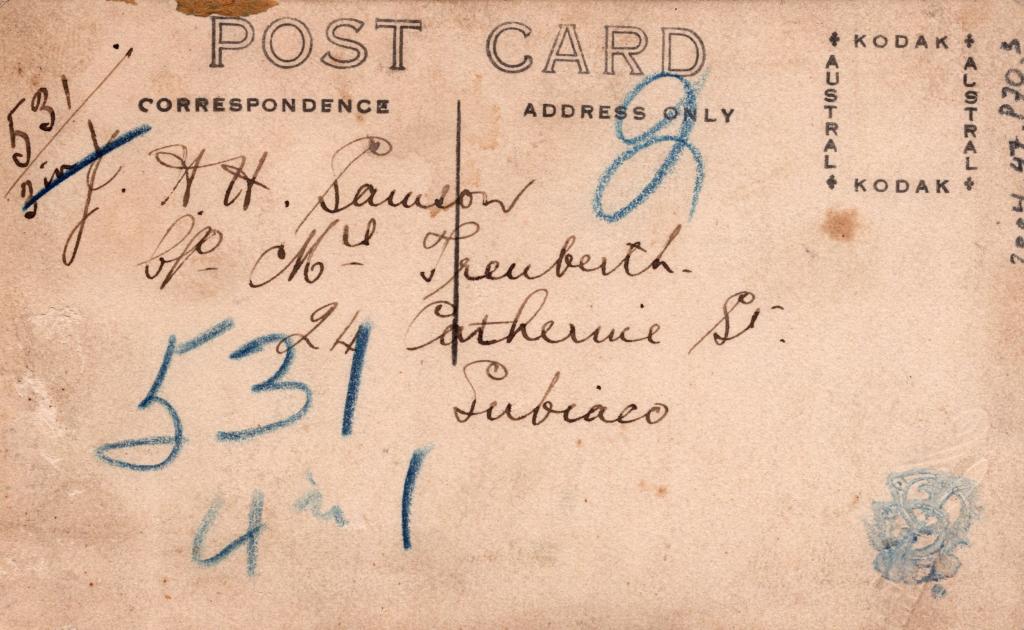 POST CARD
CORRESPONDENCE
ADDRESS ONLY
KODAK
AUSTRAL
AUSTRAL
KODAK
531
3 in
J. A H. Samson
C/o Mrs Trenberth.
24 Catherine St.
Subiaco
g
531
4 in 1